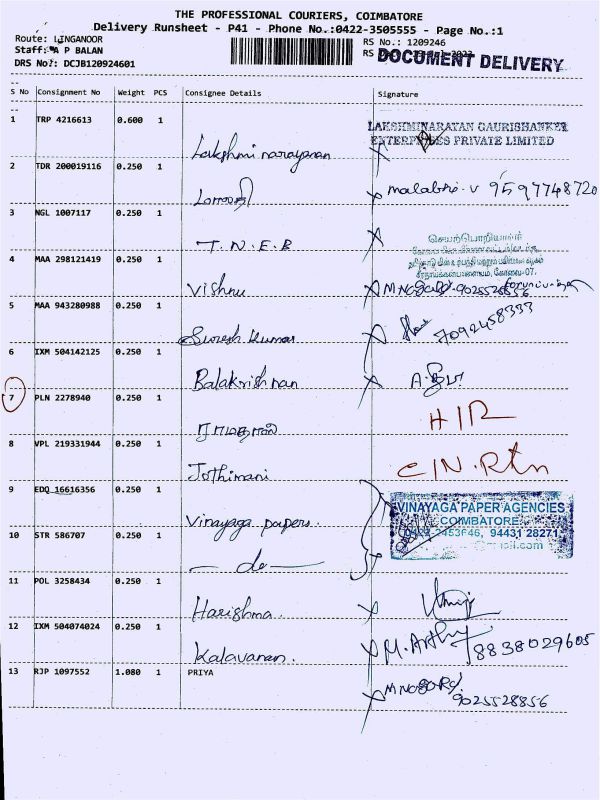 THE PROFESSIONAL COURIERS, COIMBATORE
Delivery Runsheet - P41 - Phone No.:0422-3505555 - Page No.:1
Route: LINGANOOR
Staff: A P BALAN
DRS No.: DCJB120924601
RS No.: 1209246
DOCUMENT DELIVERY
S No Consignment No Weight PCS Consignee Details Signature
1 TRP 4216613 0.600 1 Lakshmi narayanan
LAKSHMINARAYAN GAURISHANKER
ENTERPRISES PRIVATE LIMITED
2 TDR 200019116 0.250 1 மாலதி malathi. v 9597748720
3 NGL 1007117 0.250 1 T.N.E.B
செயற்பொறியாளர்
4 MAA 298121419 0.250 1 Vishnu 9025528856
5 MAA 943280988 0.250 1 Suresh kumar 7092458333
6 IXM 504142125 0.250 1 Balakrishnan
7 PLN 2278940 0.250 1 ராமதாஸ் H/R
8 VPL 219331944 0.250 1 Jothimani C/N. Rtn
9 EDQ 16616356 0.250 1 Vinayaga papers.
VINAYAGA PAPER AGENCIES
COIMBATORE
94431 28271
10 STR 586707 0.250 1 — do —
11 POL 3258434 0.250 1 Harishma.
12 IXM 504074024 0.250 1 Kalavanan. M. Arthy 8838029605
13 RJP 1097552 1.080 1 PRIYA
9025528856